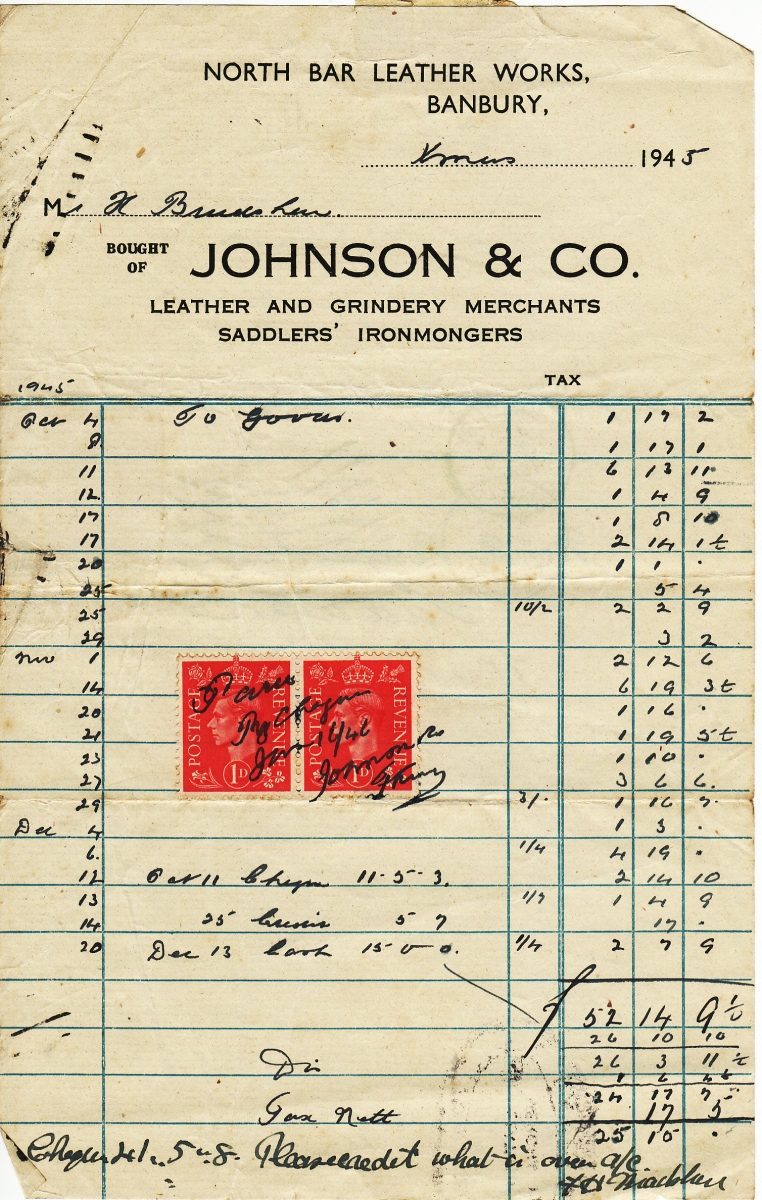 NORTH BAR LEATHER WORKS,
BANBURY,
Xmas 1945
Mr H Bradshaw.
BOUGHT OF JOHNSON & CO.
LEATHER AND GRINDERY MERCHANTS
SADDLERS' IRONMONGERS
TAX
1945
Oct 4 To Goods. 1 17 2
8 1 17 1
11 6 13 11
12 1 4 9
17 1 8 10
17 2 14 1½
20 1 1 .
25 5 4
25 10/2 2 2 9
29 3 2
Nov 1 2 12 6
14 6 19 3½
20 1 16 .
21 1 19 5½
23 1 10 .
27 3 6 6
29 3/. 1 16
Dec 4 1 3 .
6. 1/4 4 19 .
12 Oct 11 Cheque 11-5-3. 2 14 10
13 1/7 1 4 9
14 25 5 7 17 .
20 Dec 13 Cash 15-0-0. 1/4 2 7 9
POSTAGE REVENUE 1D
POSTAGE REVENUE 1D
By Cheque
Jan 1/46
Johnson & Co
52 14 9½
26 10 10
26 3 11½
Dis 1 6
24 17 7
Tax Nett 17 5
25 15 .
Cheque 41. 5 - 8. Please credit what is over a/c